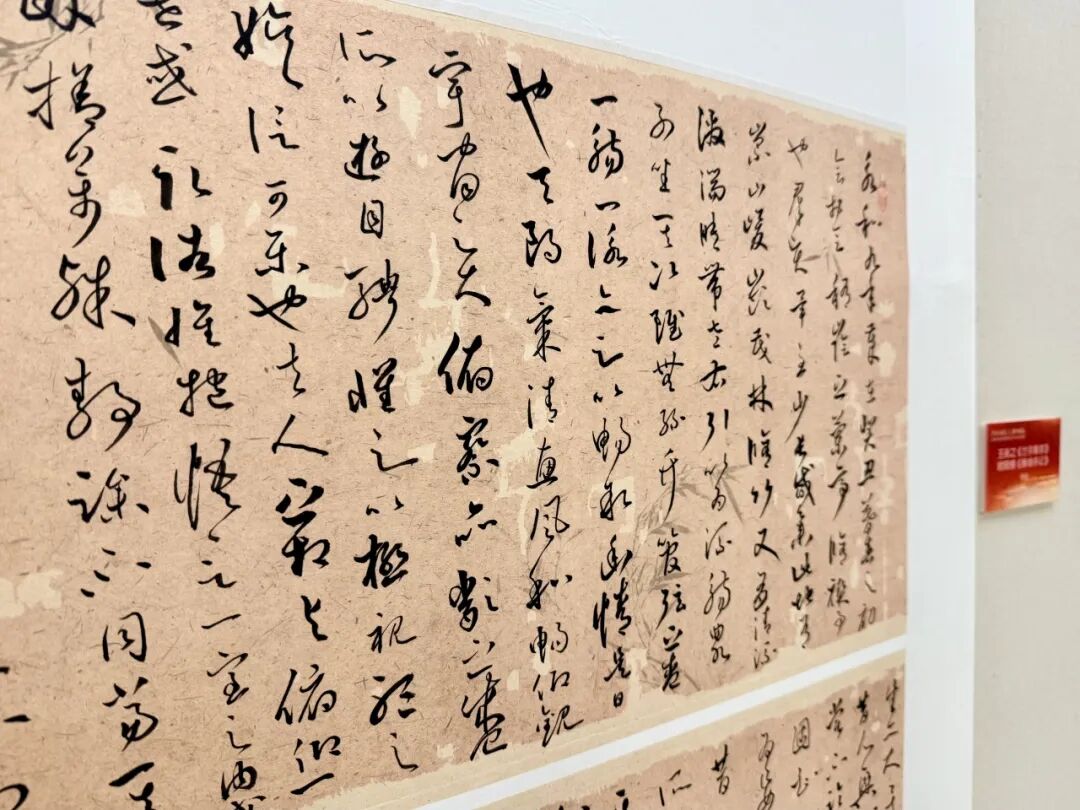 永和九年歲在癸丑暮春之初
會於會稽山陰之蘭亭脩禊事
也群賢畢至少長咸集此地有
崇山峻嶺茂林脩竹又有清流
激湍映帶左右引以為流觴曲水
列坐其次雖無絲竹管弦之盛
一觴一詠亦足以暢敘幽情是日
也天朗氣清惠風和暢仰觀
宇宙之大俯察品類之盛
所以遊目騁懷足以極視聽之
娛信可樂也夫人之相與俯仰一
世或取諸懷抱悟言一室之內或
捨萬殊靜躁不同當其
生亦大
昔人興
嘗不臨
固知
昔